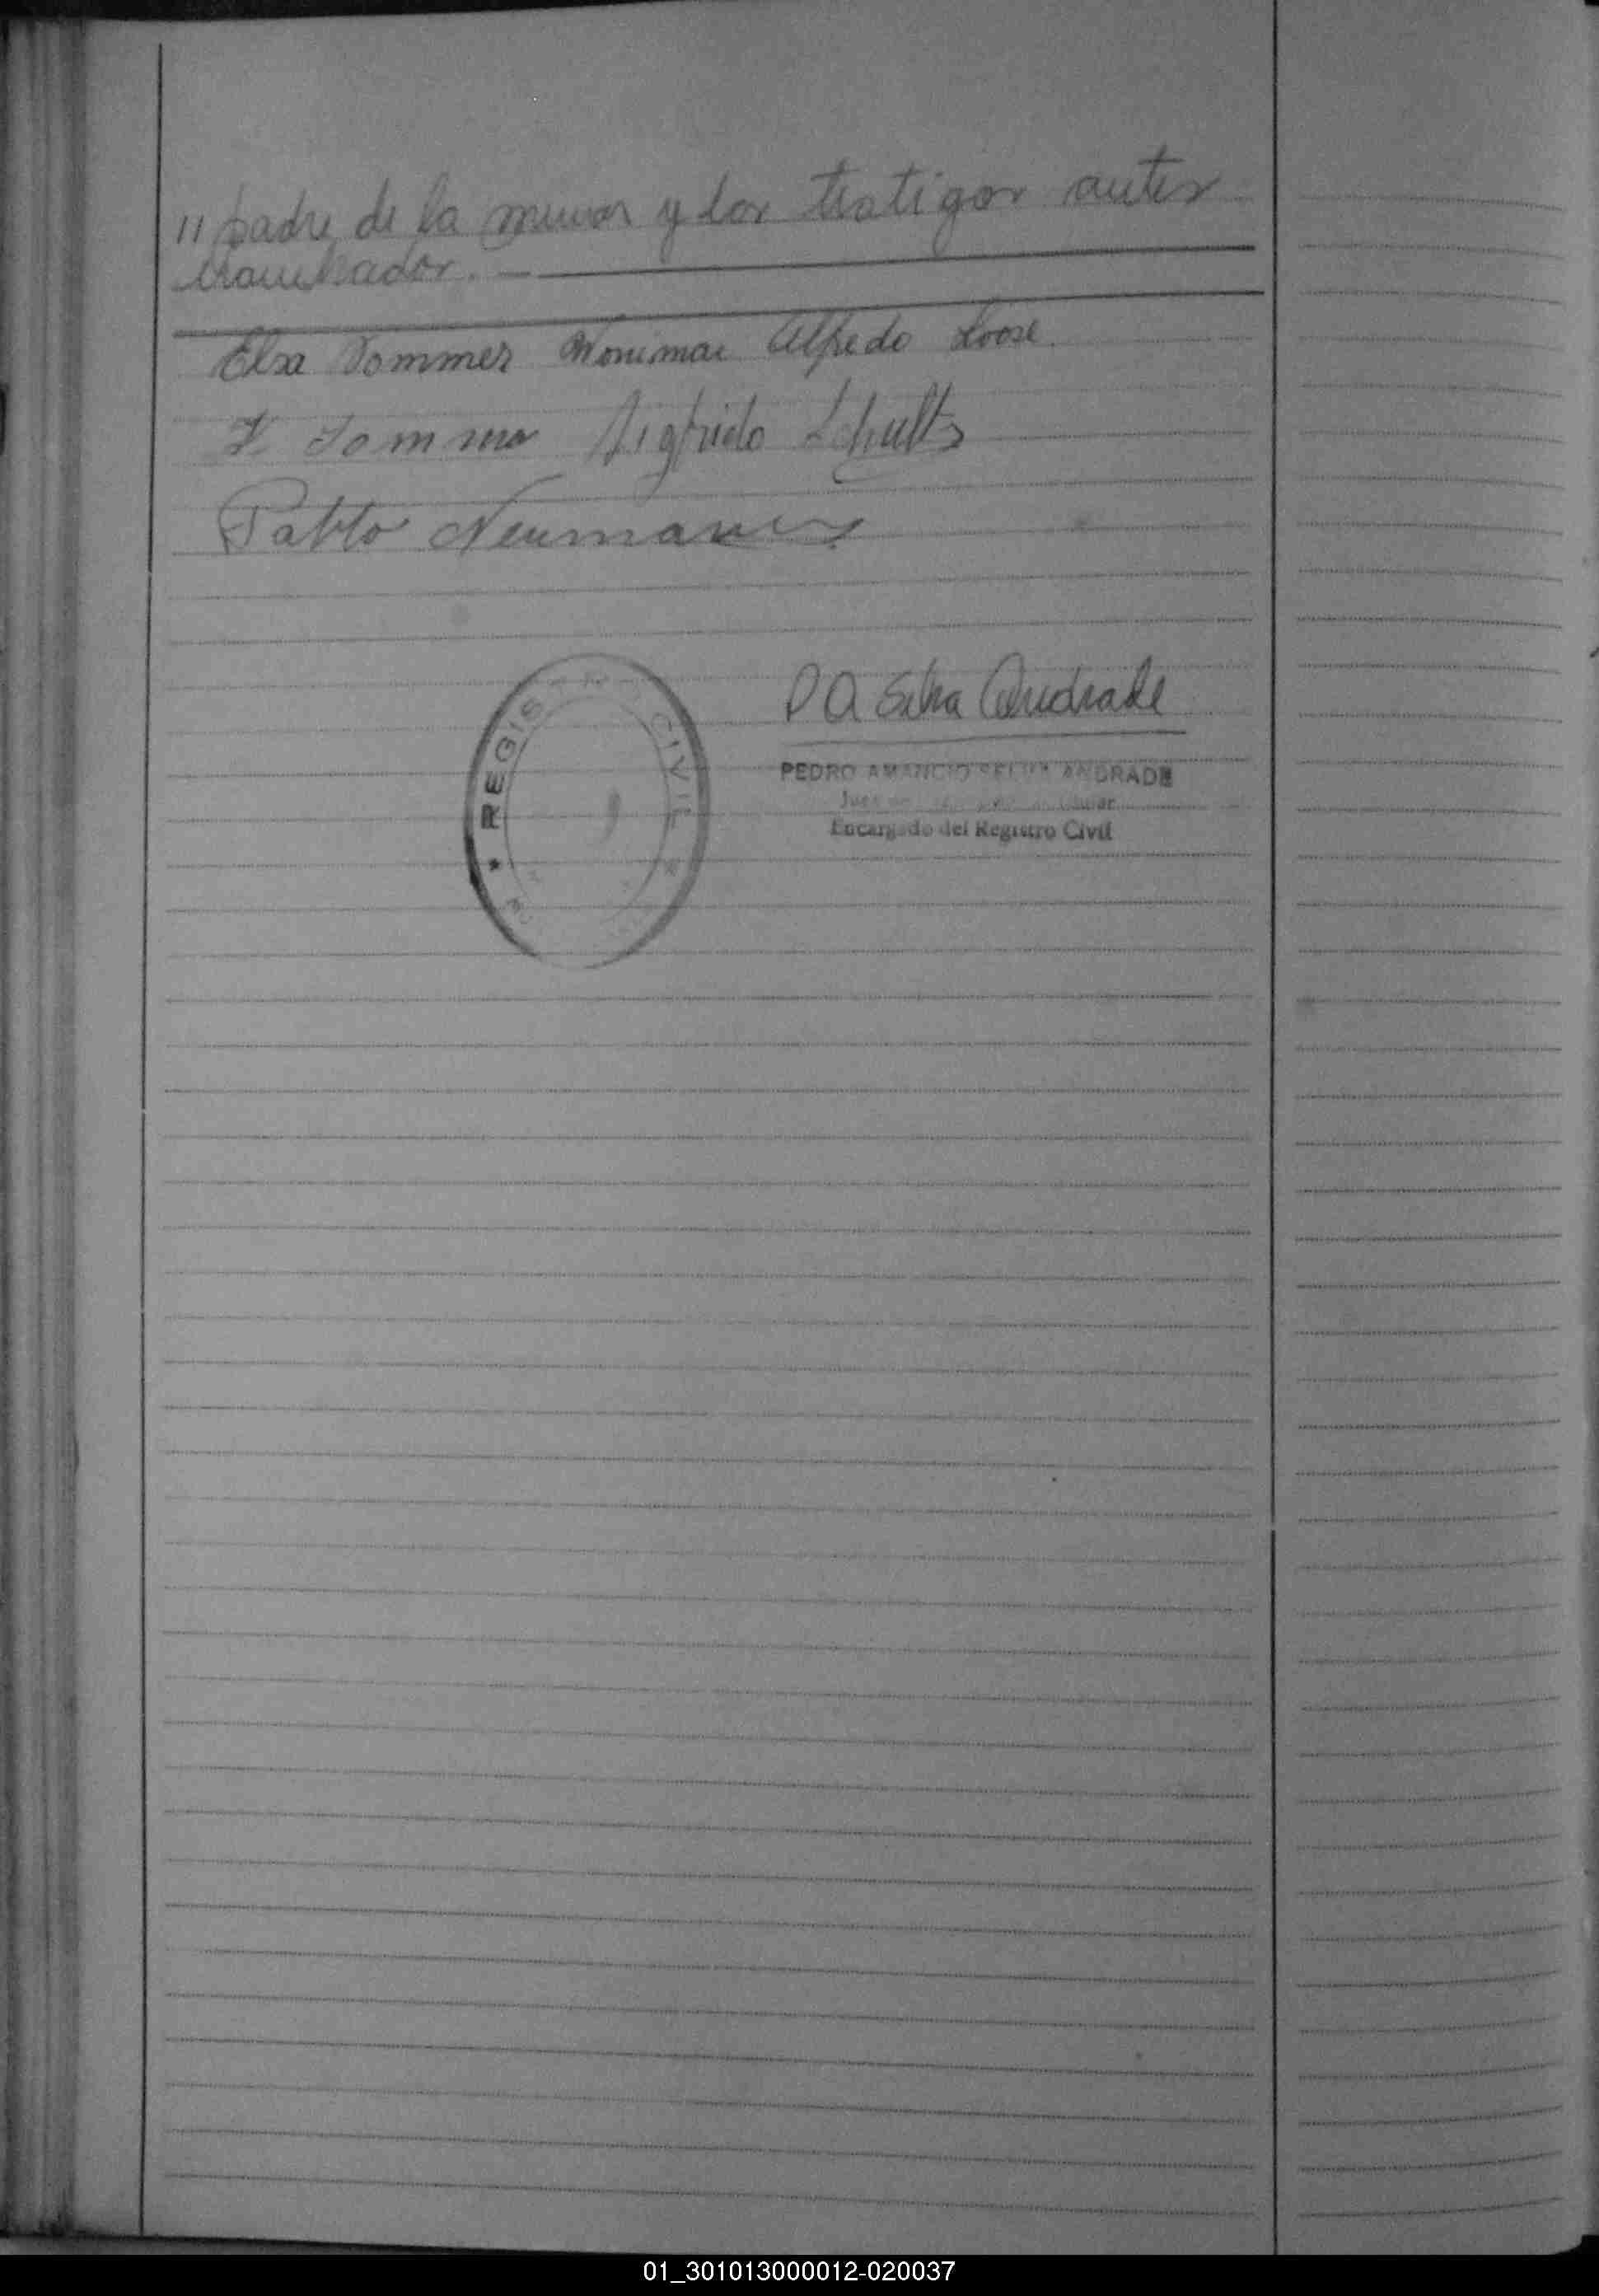 " padre de la menor y los testigos antes
nombrados. —
Elsa Sommer Alfredo Loose.
Sigfrido Schultz
Pablo Neumann
REGISTRO CIVIL
P A Silva Andrade
PEDRO AMANCIO SELVA ANDRADE
Encargado del Registro Civil
01_301013000012-020037